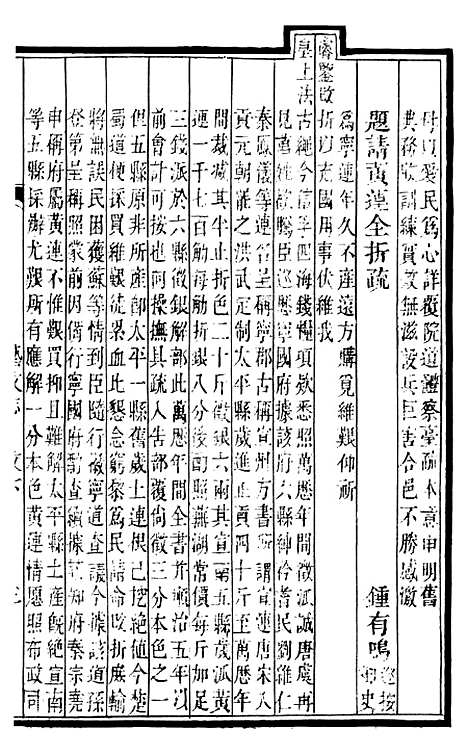 母以愛民為心詳覆院道鹽察臺疏本意申明舊
典務致訓練賀設無滋設兵巨害合邑不勝感激
題請黃蓮全折疏　鍾有鳴巡按御史
為寧連年久不產遠方購覓維艱仰祈
睿鑒改折以充國用事伏維我
皇上法古繩今富孚四海錢糧項欵悉照萬歷年間徵派誠唐虞再
見萬姓歡騰臣巡歷寧國府據該府六縣紳衿耆民劉維仁
秦鳳儀等連名呈稱寧郡古稱宣州方書所謂宣連唐宋入
貢元朝雖之洪武定制太平歲進正貢四十斤至萬歷年
間裁減其半止折色二十斤徵銀六兩其宣南五縣歲派黃
連一千七百觔每觔折銀八分後酌照蕪湖常價每斤加足
三錢派於六縣徵銀解部此萬歷年間全書并順治五年以
前會計可按也何操撫具疏入告部覆尚徵三分本色之一
但五縣原非所產卽太平一縣舊歲土連根已挖絕値今楚
蜀道梗採買維艱徒累血比懇念窮黎為民請命改折庶輸
將無誤民困獲蘇等情到臣隨行徽寧道查議今據該道孫
登第呈稱照蒙前因備行寧國府酌查續據該府知府秦宗堯
申稱府屬黃連不惟觀買抑且難解太平縣土產旣絕宣南
等五縣採辦尤艱所有應解一分本色黃蓮情愿照布政司
藝文志　文下　三